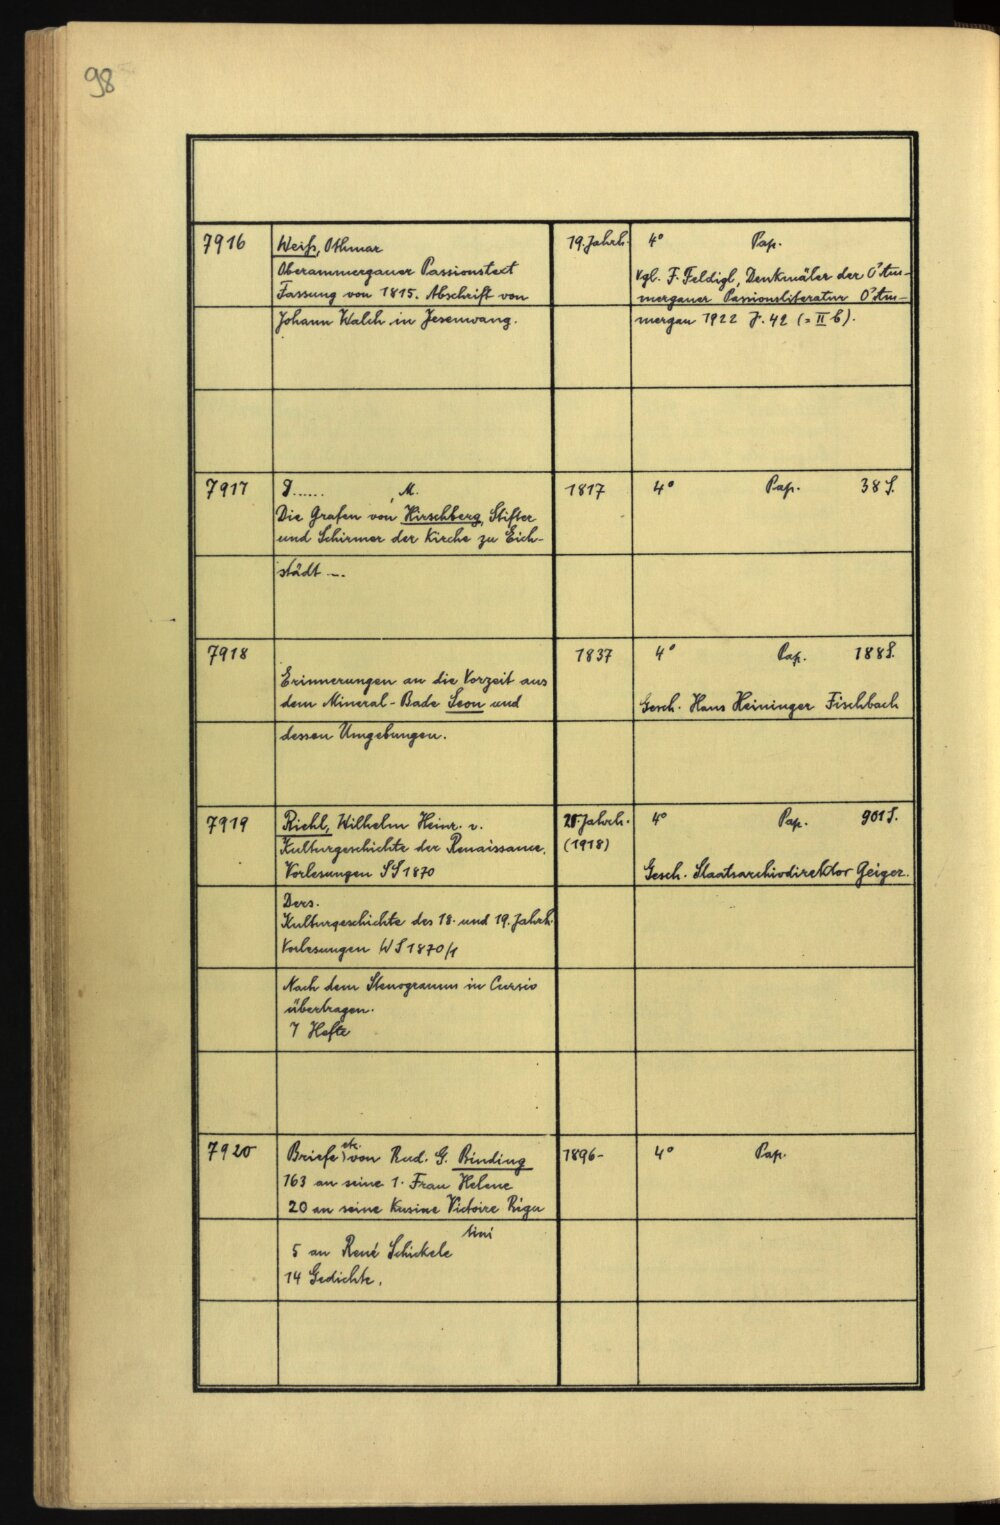 98
7916 Weiß, Othmar 19. Jahrh. 4° Pap.
Oberammergauer Passionstext Vgl. F. Feldigl, Denkmäler der O'Am-
Fassung von 1815. Abschrift von mergauer Passionsliteratur O'Am-
Johann Walch in Jesenwang. mergau 1922 S. 42 (= II b).
7917 D...... , M. 1817 4° Pap. 38 S.
Die Grafen von Hirschberg, Stifter
und Schirmer der Kirche zu Eich-
städt -.-
7918 1837 4° Pap. 188 S.
Erinnerungen an die Vorzeit aus
dem Mineral-Bade Seon und Gesch. Hans Heininger Fischbach
dessen Umgebungen.
7919 Riehl, Wilhelm Heinr. v. 20. Jahrh. 4° Pap. 901 S.
Kulturgeschichte der Renaissance. (1918)
Vorlesungen SS 1870 Gesch. Staatsarchivdirektor Geiger.
Ders.
Kulturgeschichte des 18. und 19. Jahrh.
Vorlesungen WS 1870/1
Nach dem Stenogramm in Cursiv
übertragen.
7 Hefte
7920 Briefe etc. von Rud. G. Binding 1896- 4° Pap.
163 an seine 1. Frau Helene
20 an seine Kusine Victoire Rigu
tini
5 an René Schickele
14 Gedichte.